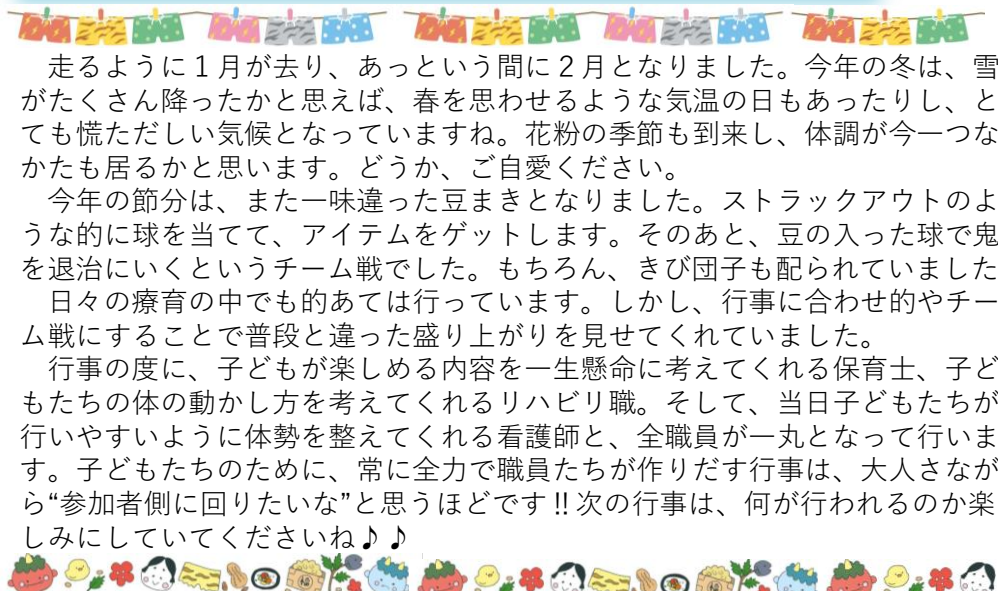 走るように１月が去り、あっという間に２月となりました。今年の冬は、雪
がたくさん降ったかと思えば、春を思わせるような気温の日もあったりし、と
ても慌ただしい気候となっていますね。花粉の季節も到来し、体調が今一つな
かたも居るかと思います。どうか、ご自愛ください。
今年の節分は、また一味違った豆まきとなりました。ストラックアウトのよ
うな的に球を当てて、アイテムをゲットします。そのあと、豆の入った球で鬼
を退治にいくというチーム戦でした。もちろん、きび団子も配られていました
日々の療育の中でも的あては行っています。しかし、行事に合わせ的やチー
ム戦にすることで普段と違った盛り上がりを見せてくれていました。
行事の度に、子どもが楽しめる内容を一生懸命に考えてくれる保育士、子ど
もたちの体の動かし方を考えてくれるリハビリ職。そして、当日子どもたちが
行いやすいように体勢を整えてくれる看護師と、全職員が一丸となって行いま
す。子どもたちのために、常に全力で職員たちが作りだす行事は、大人さなが
ら“参加者側に回りたいな”と思うほどです‼次の行事は、何が行われるのか楽
しみにしていてくださいね♪♪